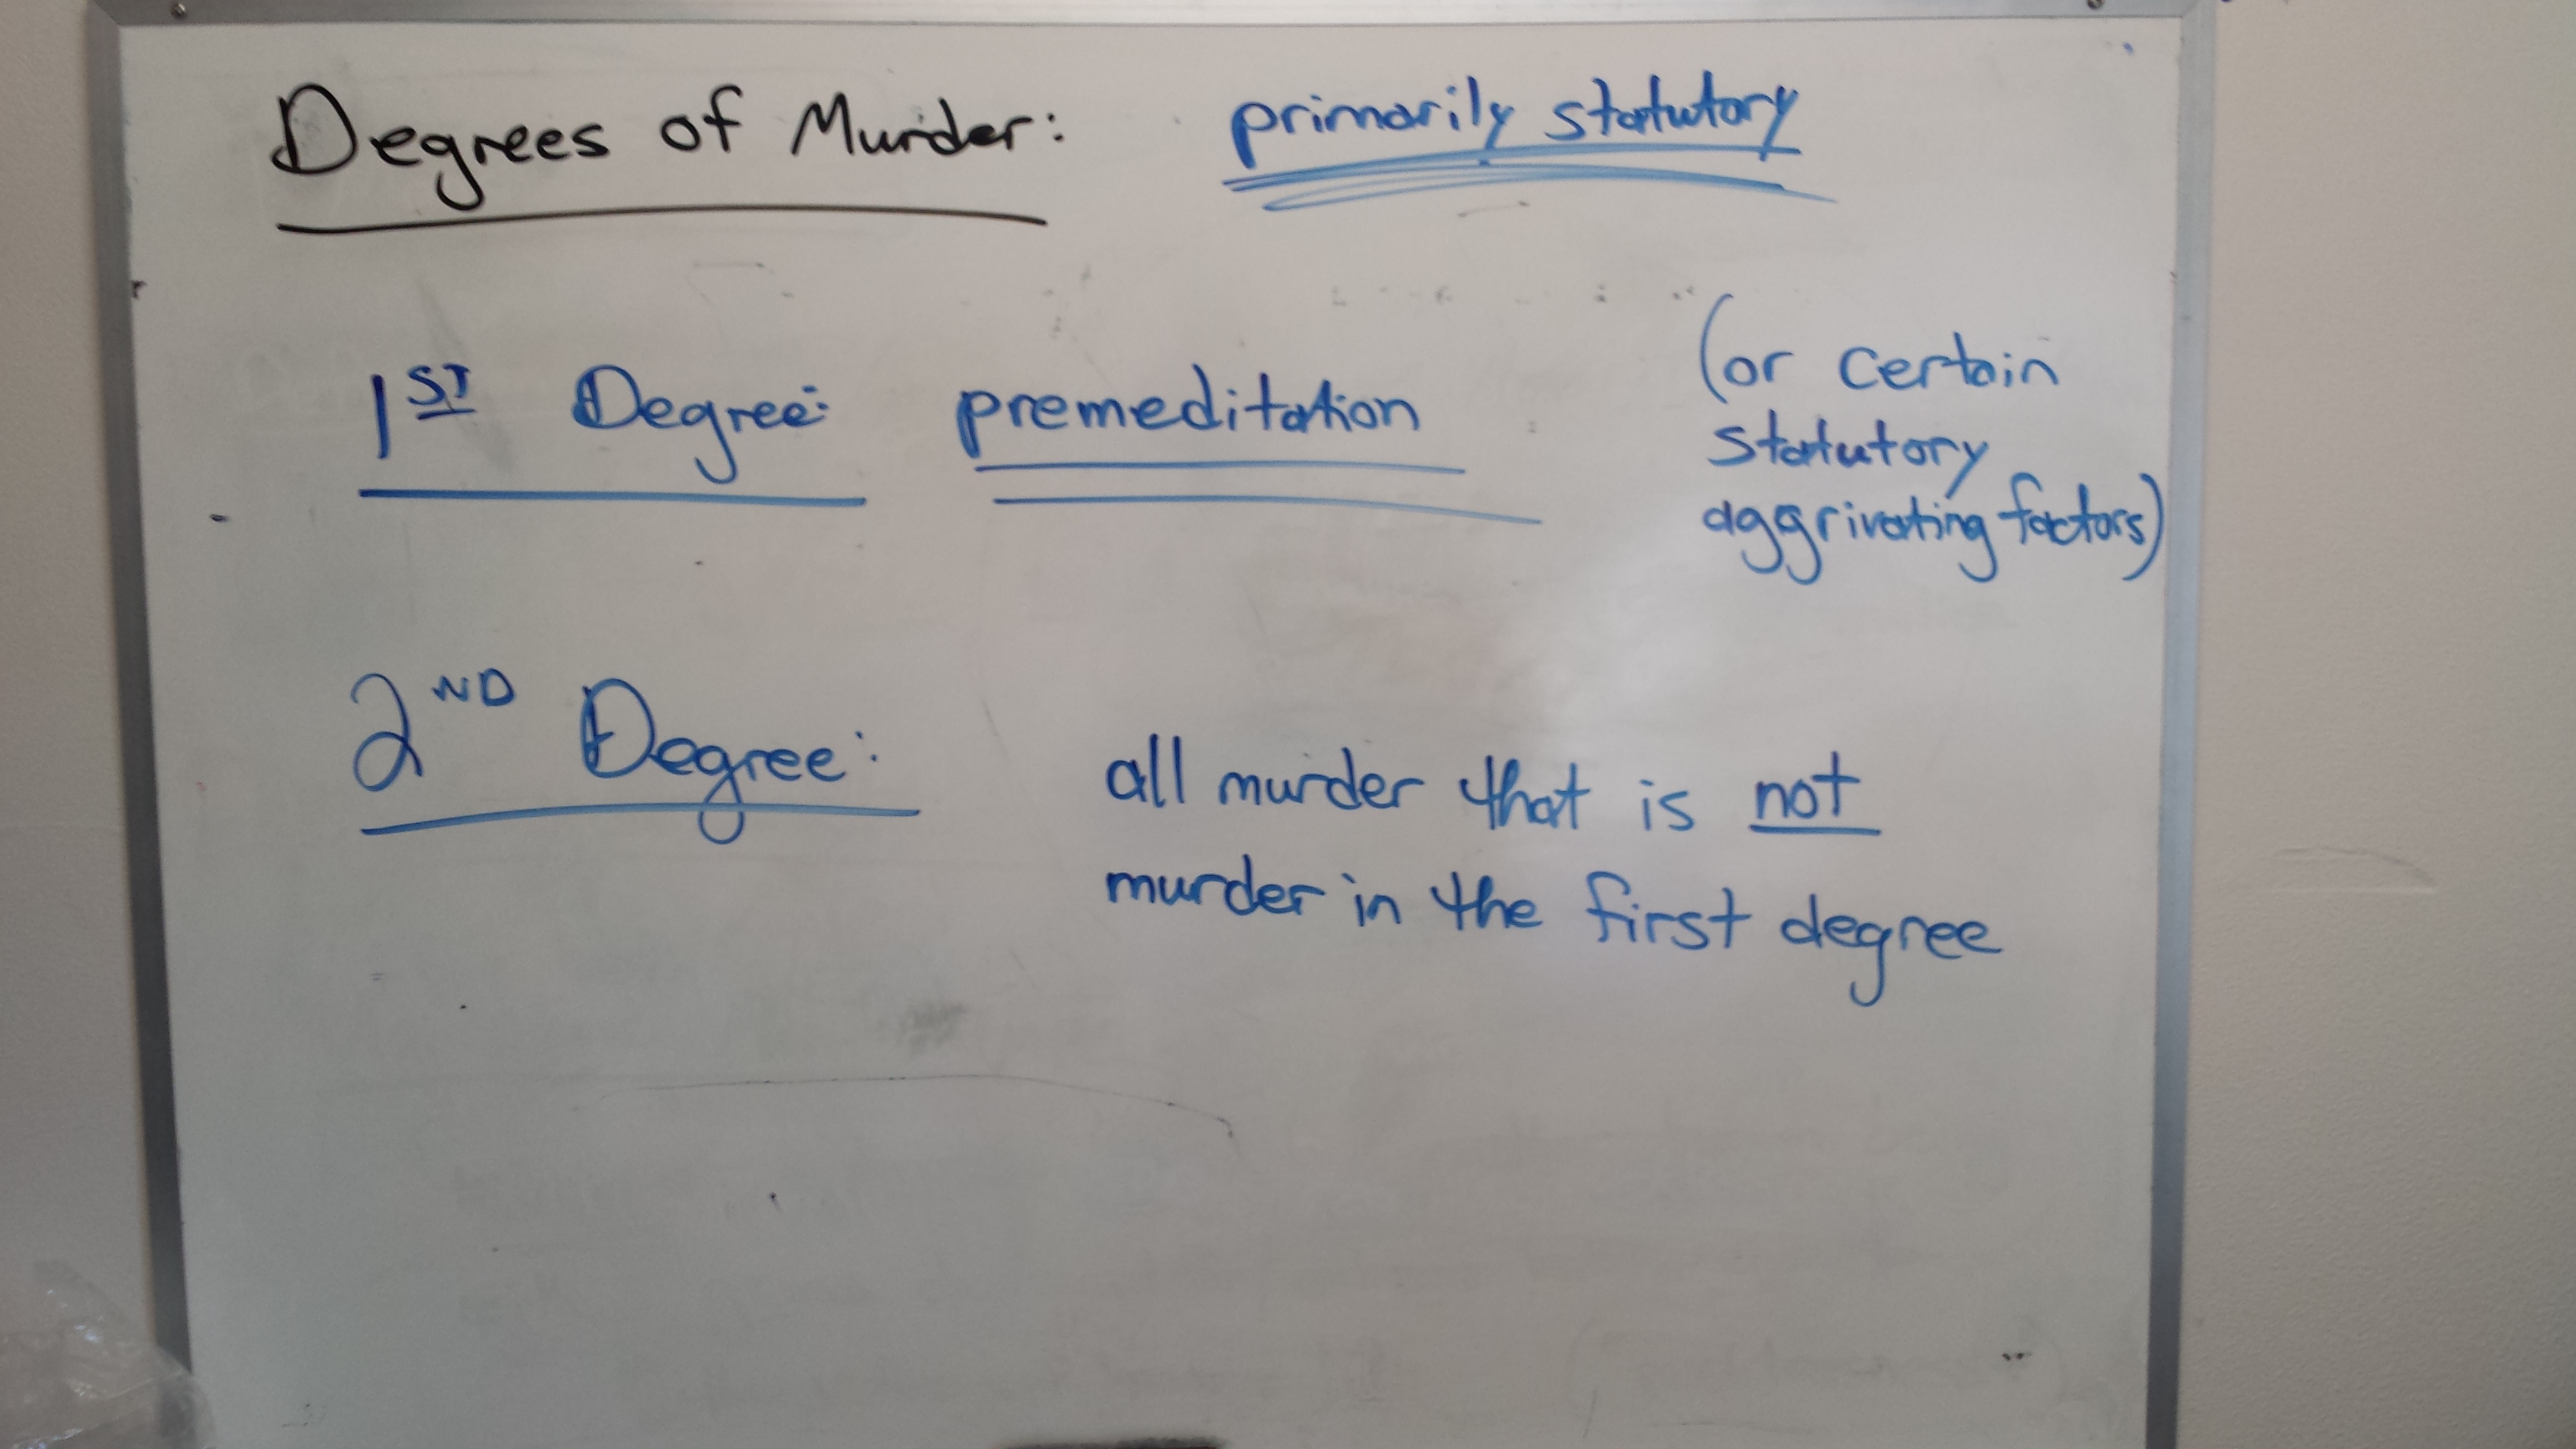 Degrees of Murder: primarily statutory
1ST Degree: premeditation (or certain
statutory
aggrivating factors)
2ND Degree: all murder that is not
murder in the first degree